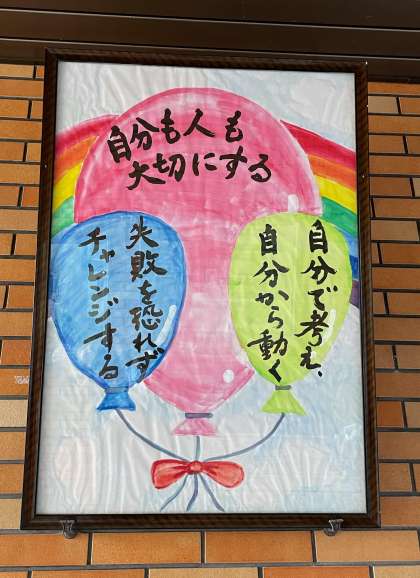 自分も人も
大切にする
自分で考え、
自分から動く
失敗を恐れず
チャレンジする